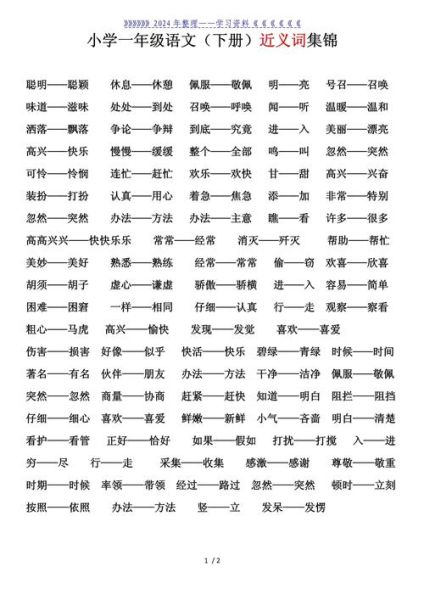 》》》》》》 2024 年整理——学习资料 《 《 《 《 《 《
小学一年级语文（下册）近义词集锦
聪明——聪颖 休息——休憩 佩服——敬佩 明——亮 号召——召唤
味道——滋味 处处——到处 召唤——呼唤 闻——听 温暖——温和
洒落——飘落 争论——争辩 到底——究竟 进——入 美丽——漂亮
高兴——快乐 慢慢——缓缓 整个——全部 鸣——叫 忽然——突然
可怜——怜悯 连忙——赶忙 欢乐——欢快 甘——甜 高兴——兴奋
装扮——打扮 认真——用心 着急——焦急 添——加 非常——特别
忽然——突然 办法——方法 办法——主意 瞧——看 许多——很多
高高兴兴——快快乐乐 常常——经常 消灭——歼灭 帮助——帮忙
美妙——美好 熟悉——熟练 经常——常常 偷——窃 欢喜——欣喜
胡须——胡子 虚心——谦虚 骄傲——骄横 进——入 容易——简单
困难——困窘 一样——相同 仔细——认真 行——走 观察——察看
粗心——马虎 高兴——愉快 发现——发觉 喜欢——喜爱
伤害——损害 好像——似乎 快活——快乐 碧绿——青绿 时候——时间
著名——有名 伙伴——朋友 办法——方法 干净——洁净 佩服——敬佩
突然——忽然 商量——协商 赶紧——赶快 知道——明白 阻拦——阻挡
仔细——细心 喜欢——喜爱 鲜嫩——新鲜 小气——吝啬 明白——清楚
看护——看管 正好——恰好 如果——假如 打扰——打搅 入——进
穷——尽 行——走 采集——收集 感激——感谢 尊敬——敬重
时期——时候 率领——带领 经过——路过 忽然——突然 顿时——立刻
按照——依照 办法——方法 竖——立 发呆——发愣
1 / 2